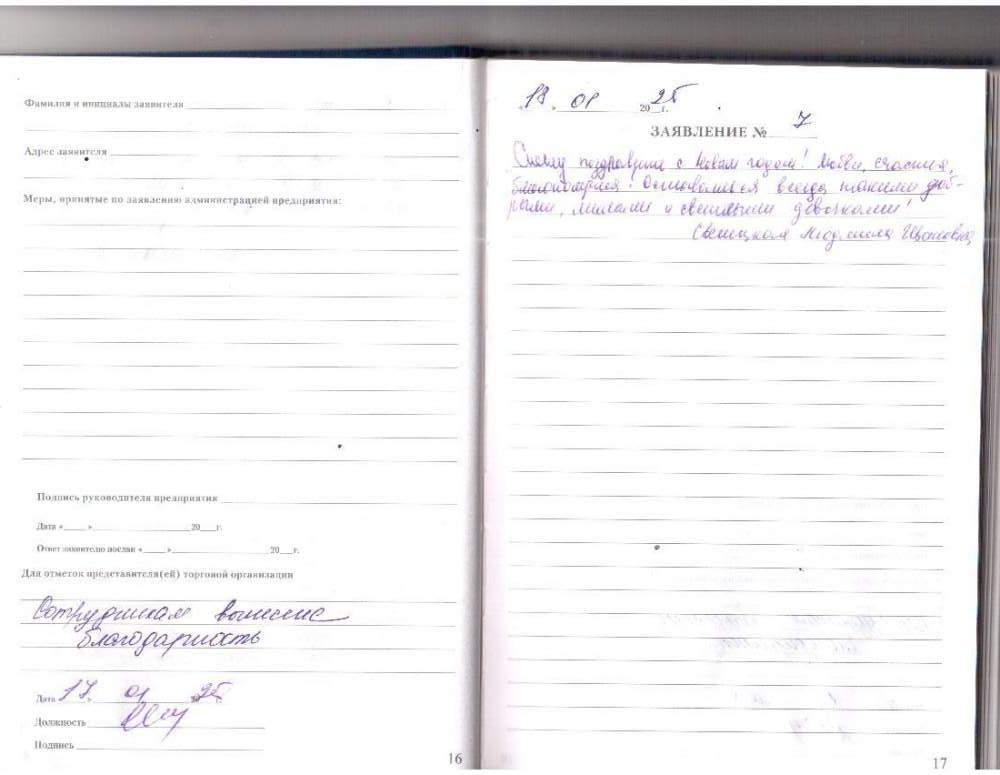 Фамилия и инициалы заявителя
Адрес заявителя
Меры, принятые по заявлению администрацией предприятия:
Подпись руководителя предприятия
Дата «___» ___ 20__г.
Ответ заявителю послан «___» ___ 20__г.
Для отметок представителя(ей) торговой организации
Сотрудникам вынесена
благодарность
Дата 17 01 25
Должность
Подпись
16
19 01 2025 г.
ЗАЯВЛЕНИЕ № 7
поздравить с Новым годом! Любви, счастья,
благополучия! Оставаться всегда такими доб-
рыми, милыми и светлыми девочками!
Людмила
17